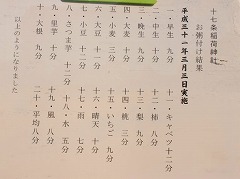 十七条稲荷神社
お粥付け結果
平成三十一年三月三日実施
一・早生　九分
二・中生　十分
三・晩生　九分
四・大麦　十分
五・小麦　三分
六・大豆　十分
七・小豆　十二分
八・さつま芋　十二分
九・里芋　十分
十・大根　九分
十一・キャベツ　十二分
十二・柿　八分
十三・梨　九分
十四・桃　三分
十五・いちご　九分
十六・晴天　十分
十七・雨　七分
十八・水　五分
十九・風　八分
二十・平均　八分
以上のようになりました